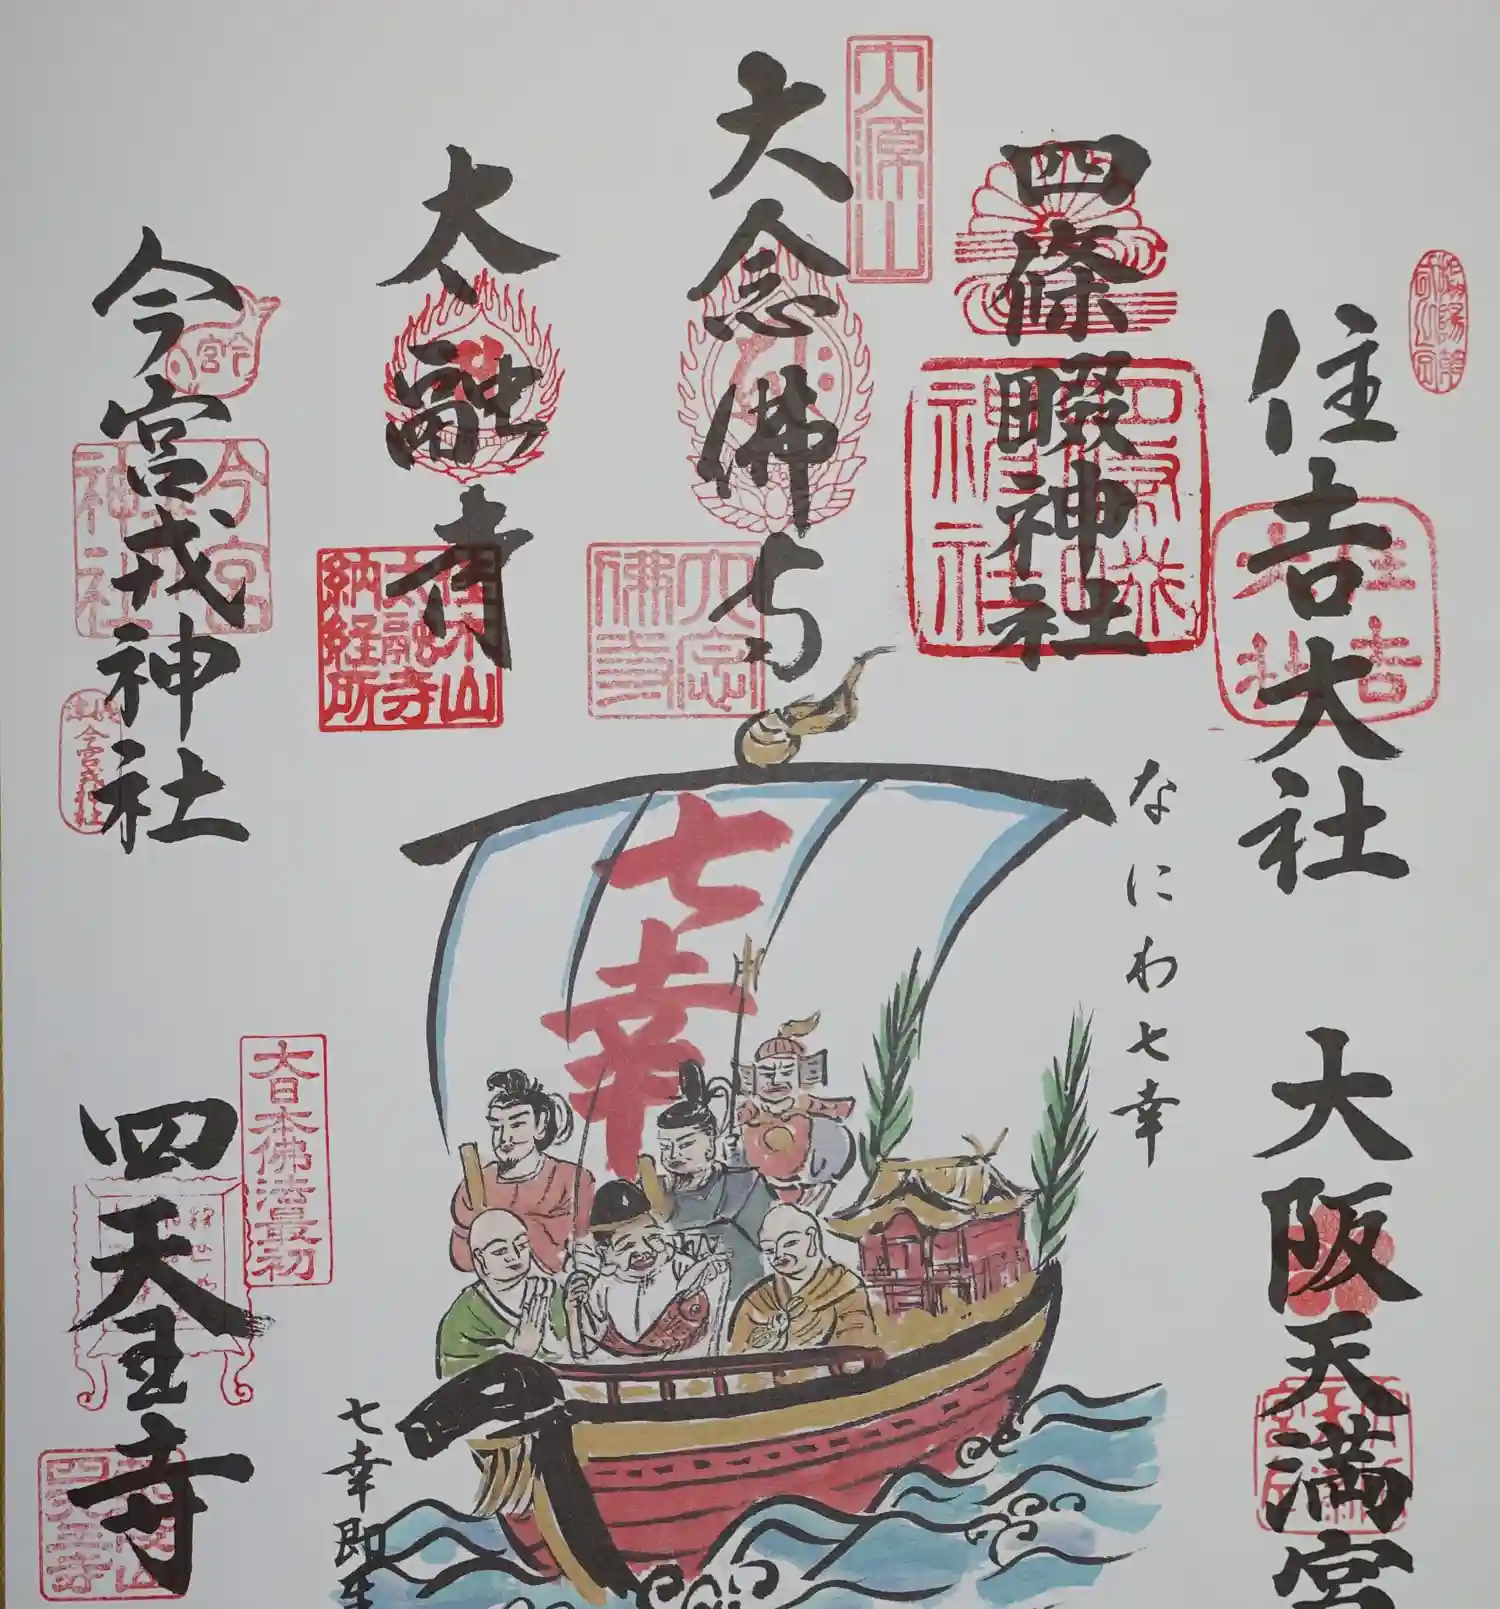 住吉大社
住吉
大阪天満宮
四條畷神社
なにわ七幸
大源山
大念佛寺
大念
佛寺
太融寺
佳木山
太融寺
納経所
七幸
今宮戎神社
今宮
神社
大日本佛法最初
四天王寺
七幸即生